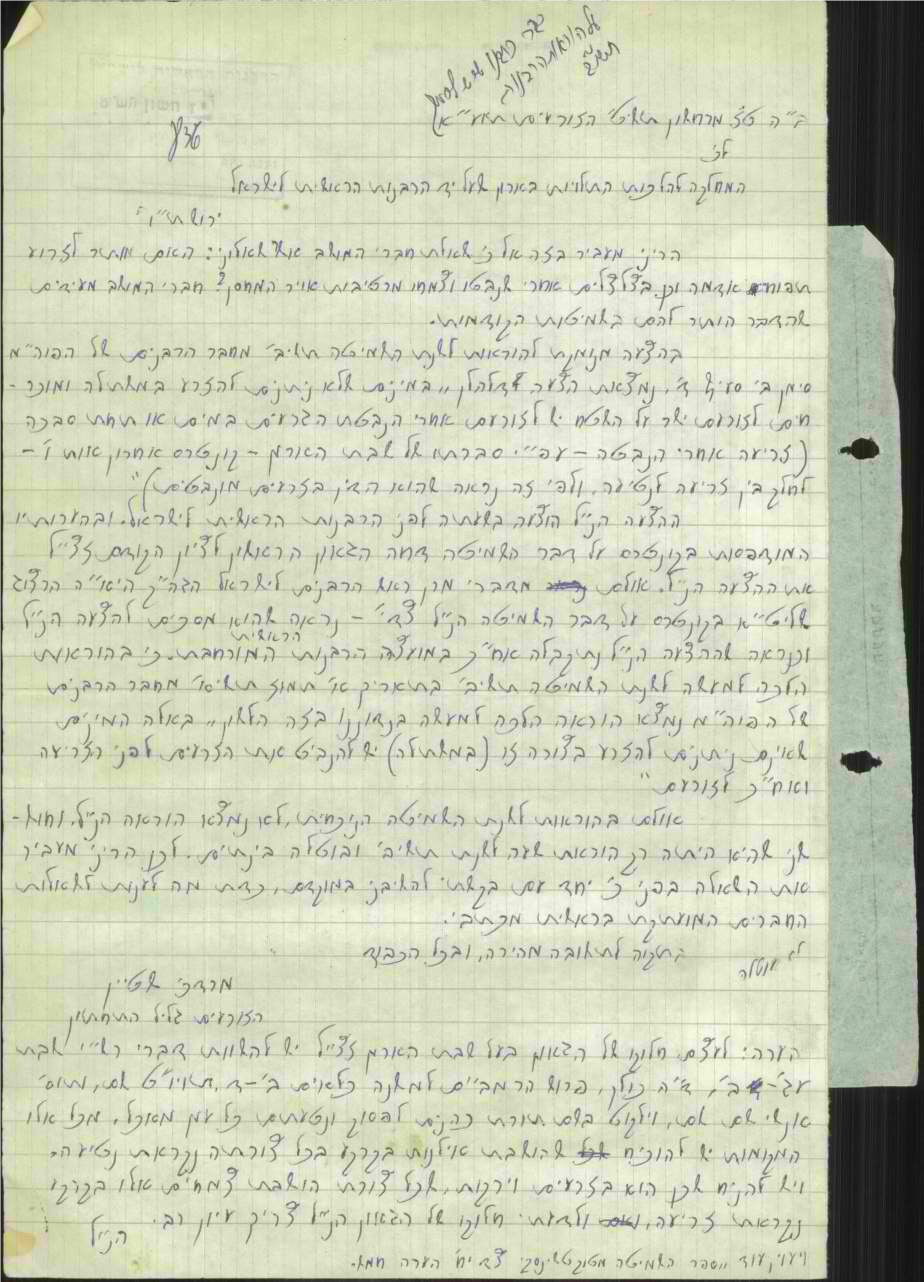 כבר הובאו
על הוראת הרבנות
תשי"ב
ב"ה ט"ז מרחשון תשי"ט הזורעים ת.ד.
836
לכ'
המחלקה להלכות התלויות בארץ שעל יד הרבנות הראשית לישראל
ירושת"ו
הריני מעביר בזה אל כ' שאלת חברי המושב אשר שאלוני: האם מותר לזרוע
תפוחי אדמה וכן בצלצלים אחרי שנבטו וצמחו מרטיבות אויר המחסן? חברי המושב מעידים
שהדבר הותר להם בשמיטות הקודמות.
בהצעה מנומקת להוראות לשנת השמיטה תשי"ב מחבר הרבנים של הפוה"מ
סימן ב' סעיף ד', נמצאת הצעה דלהלן "במינים שלא ניתנים להזרע במשתלה ומוכר-
חים לזורעם ישר על השטח יש לזורעם אחרי הנבטת הגרעינים במים או תחת סבכה
(זריעה אחרי הנבטה - עפ"י סברתו של שבת הארץ - קונטרס אחרון אות ו' -
לחלק בין זריעה לנטיעה, ולפי זה נראה שהוא הדין בזרעים מונבטים)".
ההצעה הנ"ל הוצעה בשעתה לפני הרבנות הראשית לישראל. ובהערותיו
המודפסות בקונטרס על דבר השמיטה דחה הגאון הראשון לציון הקודם זצ"ל
את ההצעה הנ"ל. אולם מדברי מרן ראש הרבנים לישראל הגה"ק הריא"ה הרצוג
שליט"א בקונטרס על דבר השמיטה הנ"ל - נראה שהוא מסכים להצעה הנ"ל
וכנראה שההצעה הנ"ל נתקבלה אח"כ במועצה הרבנות הראשית המורחבת. כי בהוראות
הלכה למעשה לשנת השמיטה תשי"ב בתאריך תמוז תשי"א מחבר הרבנים
של הפוה"מ נמצא הוראה הלכה למעשה בנידוננו בזה הלשון "באלה המינים
שאינם ניתנים להזרע בצורה זו (במשתלה) יש להנביט את הזרעים לפני הזריעה
ואח"כ לזורעם"
אולם בהוראות לשנת השמיטה הנוכחית, לא נמצא הוראה הנ"ל, וחוש-
שני שהיא היתה רק הוראת שעה לשנת תשי"ב ובוטלה בינתים. לכן הריני מעביר
את השאלה בפני כ' יחד עם בקשתי להשיבני במוקדם, כדת מה לענות לשאלות
החברים המועתקת בראשית מכתבי.
בתקוה לתשובה מהירה, ובכל הכבוד
מרדכי שטיין
הזורעים גליל התחתון
הערה: לעצם חלוקו של הגאון בעל שבת הארץ זצ"ל יש להשוות דברי רש"י שבת
ד"ה כולן, פרוש הרמב"ם למשנה כלאים ב'-ד, תויו"ט שם, ותוס'
אנשי שם שם, וילקוט בשם תורת כהנים לפסוק ונטעתם כל עץ מאכל. מכל אלו
המקומות יש להוכיח שהושבת אילנות בקרקע בכל צורתיה נקראת נטיעה.
ויש להניח שכן הוא בזרעים וירקות, שכל צורת הושבת צמחים אלו בקרקע
נקראת זריעה, ולדעתי חלוקו של הגאון הנ"ל צריך עיון רב.
הנ"ל
ויעוין עוד בספר השמיטה מטוקטשינסקי הערה